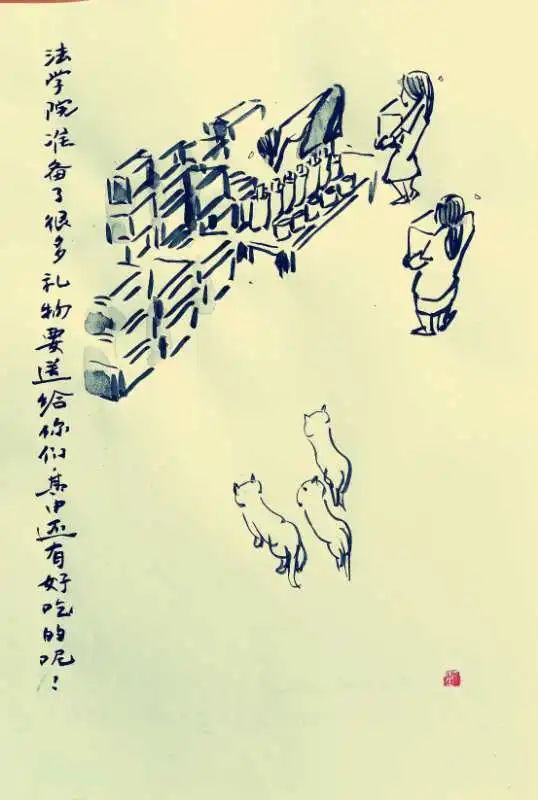 法学院准备了很多礼物要送给你们.其中还有好吃的呢！